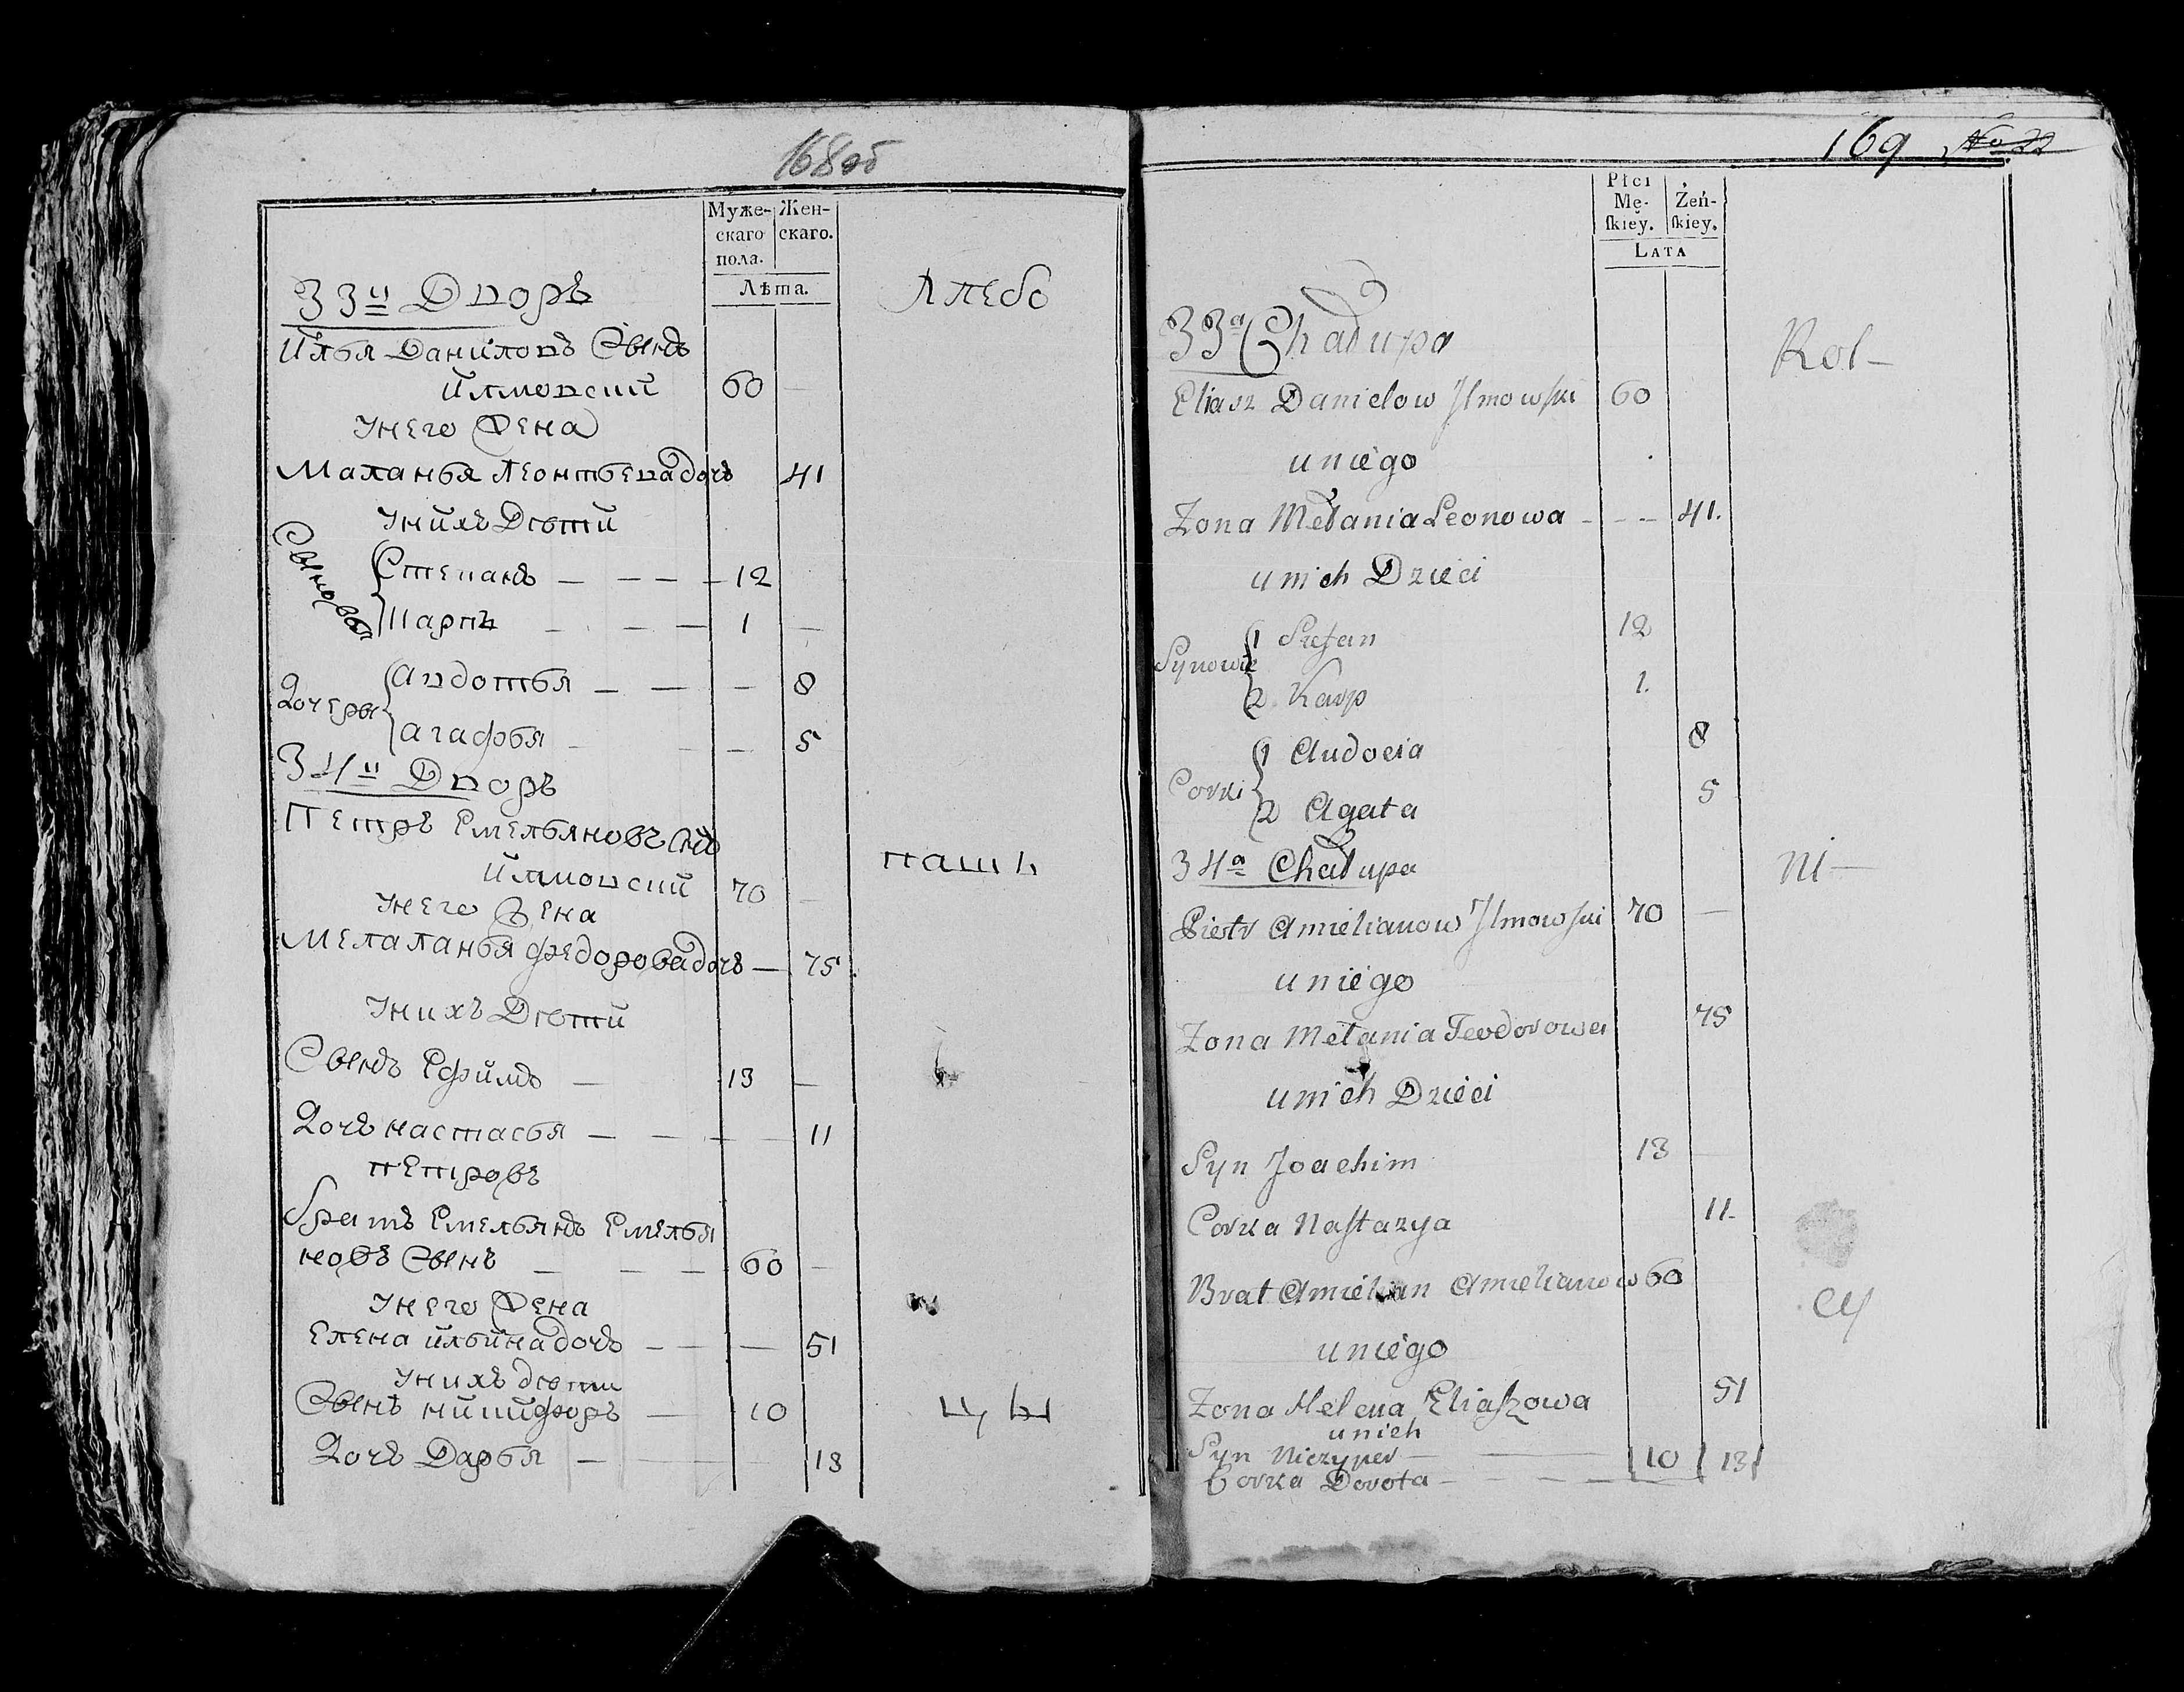 168об
Муже-
скаго
пола.
Жен-
скаго.
Лѣта.
33й Дворъ
Илья Даниловъ Сынъ
Илмовский 60
У него Жена
Маланья Леонтьева дочь 41
У нихъ Дѣти
Сыновья
Степанъ 12
Карпъ 1
Дочеры
Авдотья 8
Агафья 5
34й Дворъ
Петръ Емельяновъ Снъ
Илмовский 70
У него Жена
Мелаланья Федорова дочь 75
У нихъ Дѣти
Сынъ Ефимъ 13
Дочь Настасья 11
Петровъ
братъ Емельянъ Емелья
новъ Сынъ 60
У него Жена
Елена Ильина дочь 51
У нихъ дѣти
Сынъ Никифоръ 10
Дочь Дарья 13
хлебо
паш
цы
169 No 22
Płci
Mę-
ſkiey.
Żeń-
ſkiey.
LATA
33a Chałupa
Eliasz Danielow Jlmowski 60
u niego
Zona Mełania Leonowa 41.
u nich Dzieci
Synowie
1 Stefan 12
2 Karp 1.
Corki
1 Audocia 8
2 Agata 5
34a Chałupa
Piotr Amielianow Jlmowski 70
u niego
Zona Mełania Teodorowa 75
u nich Dzieci
Syn Joachim 13
Corka Nastazya 11.
Brat Amielian Amielianow 60
u niego
Zona Helena Eliaszowa 51
u nich
Syn Niczyper 10
Corka Dorota 13
Rol-
ni-
cy